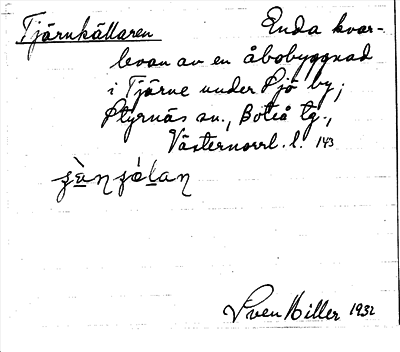 Tjärnkällaren Enda kvar-
levan av en åbobyggnad
i Tjärne under Sjö by,
Styrnäs sn., Boteå tg.,
Västernorrl. l. 143
Sven Hiller 1932